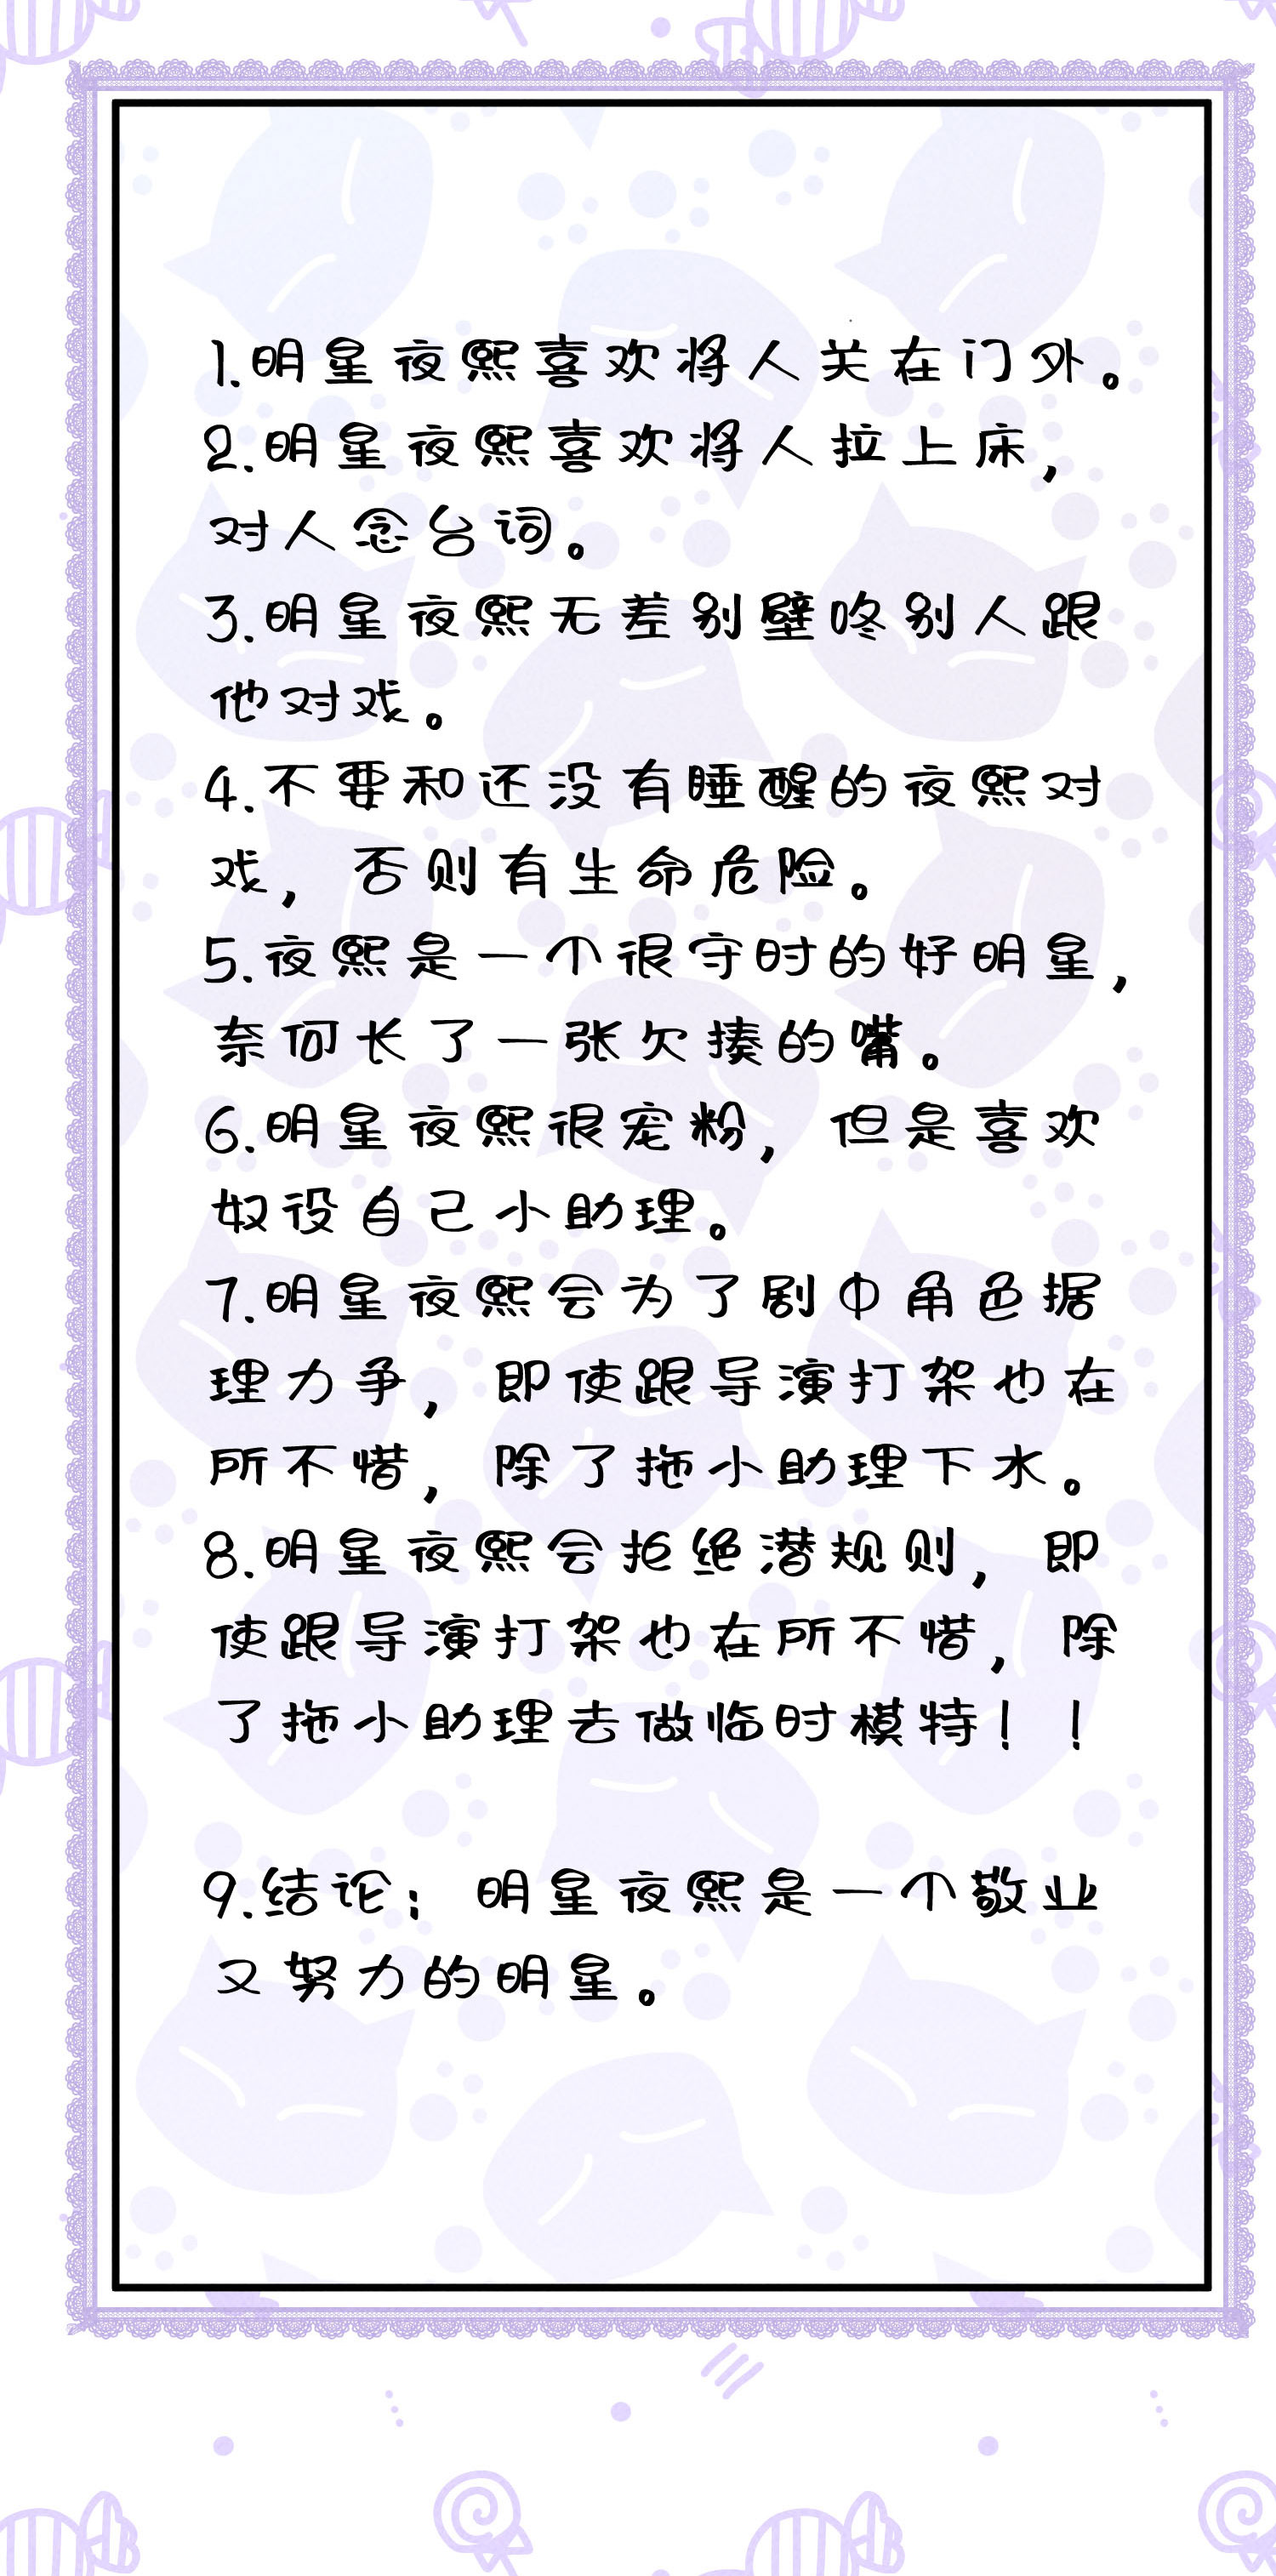 1.明星夜熙喜欢将人关在门外。
2.明星夜熙喜欢将人拉上床,
对人念台词。
3.明星夜熙无差别壁咚别人跟
他对戏。
4.不要和还没有睡醒的夜熙对
戏,否则有生命危险。
5.夜熙是一个很守时的好明星,
奈何长了一张欠揍的嘴。
6.明星夜熙很宠粉,但是喜欢
奴役自己小助理。
7.明星夜熙会为了剧中角色据
理力争,即使跟导演打架也在
所不惜,除了拖小助理下水。
8.明星夜熙会拒绝潜规则,即
使跟导演打架也在所不惜,除
了拖小助理去做临时模特!!
9.结论:明星夜熙是一个敬业
又努力的明星。